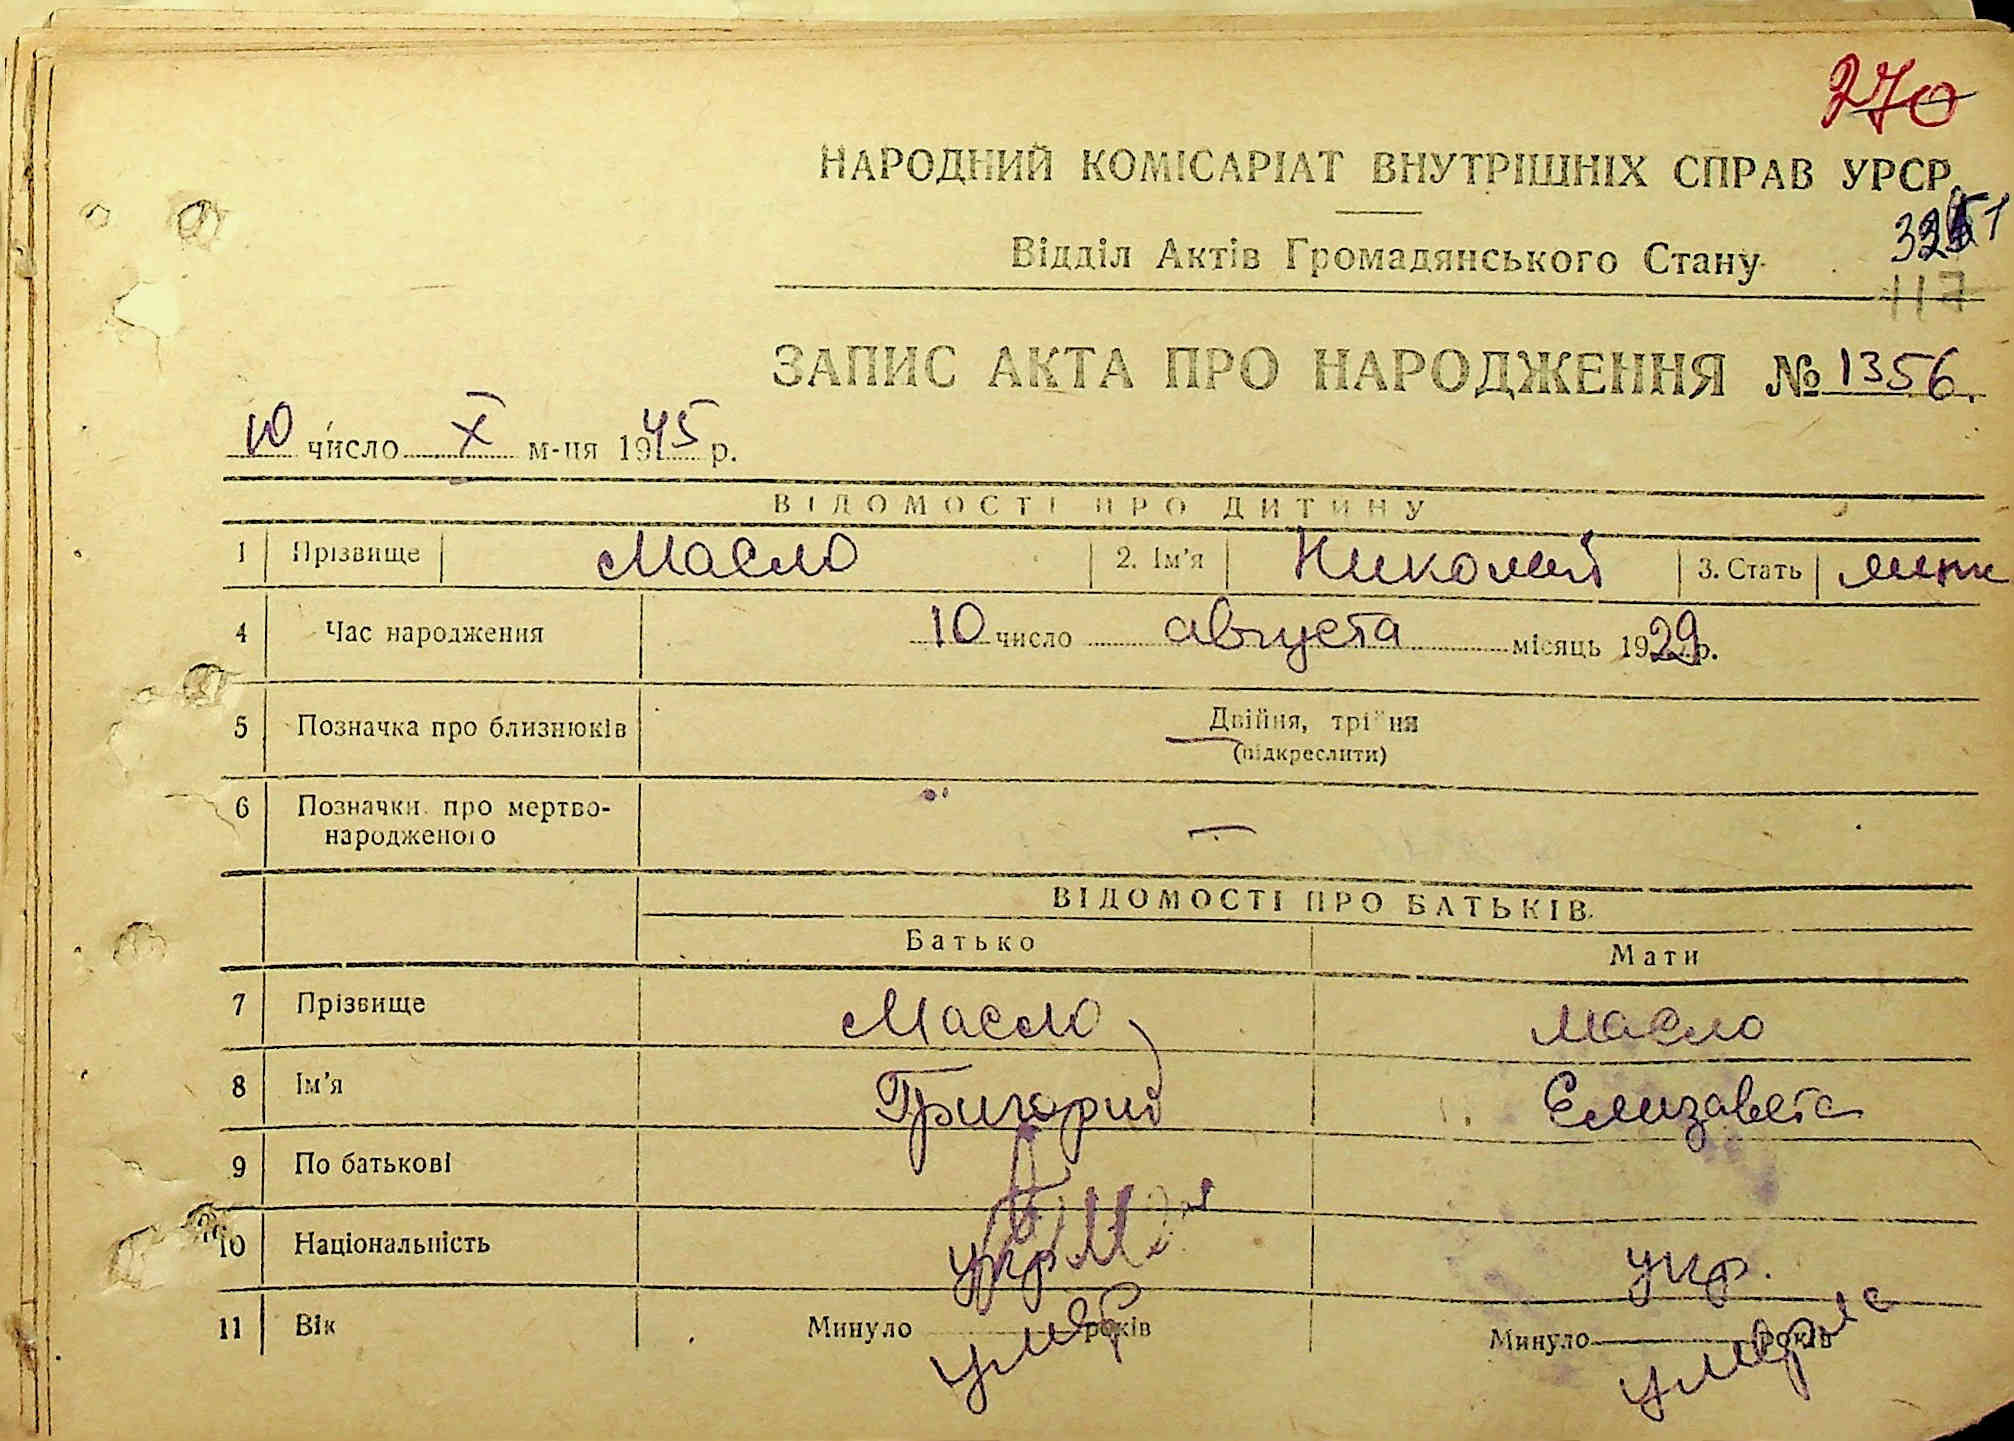 270
НАРОДНИЙ КОМІСАРІАТ ВНУТРІШНІХ СПРАВ УРСР
Відділ Актів Громадянського Стану
117
ЗАПИС АКТА ПРО НАРОДЖЕННЯ № 1356.
10 число X м-ця 1945 р.
ВІДОМОСТІ ПРО ДИТИНУ
1 Прізвище Масло 2. Ім'я Николай 3. Стать
4 Час народження 10 число августа місяць 1929 р.
5 Позначка про близнюків Двійня, трійня
(підкреслити)
6 Позначки про мертво-
народженого —
ВІДОМОСТІ ПРО БАТЬКІВ
Батько Мати
7 Прізвище Масло Масло
8 Ім'я Григорий Елизавета
9 По батькові
10 Національність укр укр.
11 Вік Минуло років умер Минуло років умерла